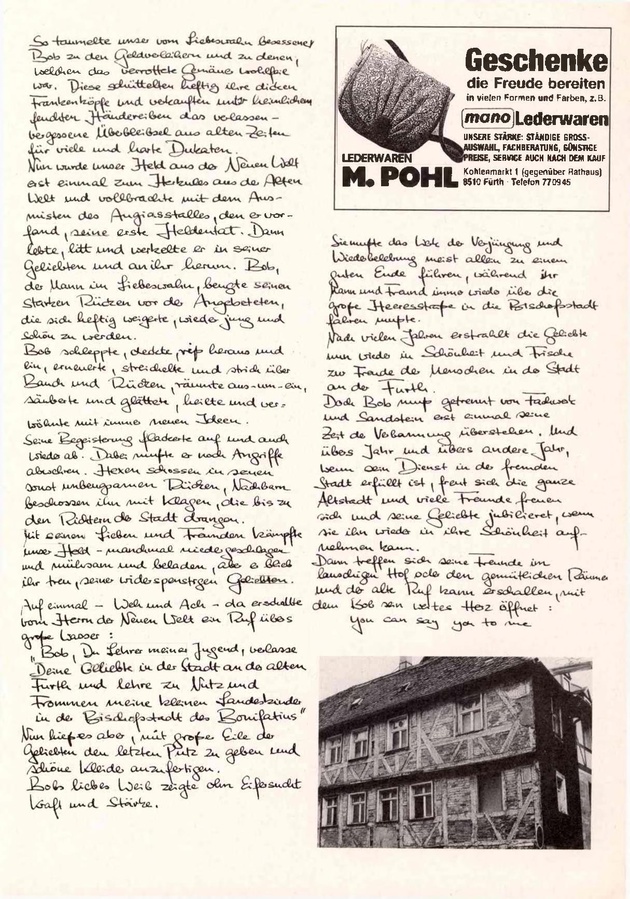 So taumelte unser vom Liebeswahn besessener
Bob zu den Geldverleihern und zu denen,
welchen das verrottete Gemäuer wohlfeil
war. Diese schüttelten heftig ihre dicken
Frankenköpfe und verkauften unter heimlichem
feuchten Händereiben das verlassen-
vergessene Überbleibsel aus alten Zeiten
für viele und harte Dukaten.
Nun wurde unser Held aus der Neuen Welt
erst einmal zum Herkules aus der Alten
Welt und vollbrachte mit dem Aus-
misten des Augiasstalles, den er vor-
fand, seine erste Heldentat. Dann
lebte, litt und werkelte er in seiner
Geliebten und an ihr herum. Bob,
der Mann im Liebeswahn, beugte seinen
starken Rücken vor der Angebeteten,
die sich heftig weigerte, wieder jung und
schön zu werden.
Bob schleppte, deckte, riß heraus und
ein, erneuerte, streichelte und strich über
Bauch und Rücken, räumte aus-um-ein,
säuberte und glättete, heilte und ver-
wöhnte mit immer neuen Ideen.
Seine Begeisterung flackerte auf und auch
wieder ab. Dabei mußte er noch Angriffe
abwehren. Hexen schossen in seinen
sonst unbeugsamen Rücken, Nachbarn
beschossen ihn mit Klagen, die bis zu
den Richtern der Stadt drangen.
Mit seinen Lieben und Freunden kämpfte
unser Held - manchmal niedergeschlagen
und mühsam und beladen, aber er blieb
ihr treu, seiner widerspenstigen Geliebten.
Auf einmal - Weh und Ach - da erschallte
vom Herrn der Neuen Welt ein Ruf übers
große Wasser:
"Bob, Du Lehrer meiner Jugend, verlasse
Deine Geliebte in der Stadt an der alten
Furth und lehre zu Nutz und
Frommen meine kleinen Landeskinder
in der Bischofsstadt des Bonifatius"
Nun hieß es aber, mit großer Eile der
Geliebten den letzten Putz zu geben und
schöne Kleider anzufertigen.
Bobs liebes Weib zeigte ohne Eifersucht
Kraft und Stärke.
Geschenke
die Freude bereiten
in vielen Formen und Farben, z.B.
mano Lederwaren
UNSERE STÄRKE: STÄNDIGE GROSS-
AUSWAHL, FACHBERATUNG, GÜNSTIGE
PREISE, SERVICE AUCH NACH DEM KAUF
LEDERWAREN
M. POHL
Kohlenmarkt 1 (gegenüber Rathaus)
8510 Fürth · Telefon 770945
Sie mußte das Werk der Verjüngung und
Wiederbelebung meist allein zu einem
guten Ende führen, während ihr
Mann und Freund immer wieder über die
große Heeresstraße in die Bischofsstadt
fahren mußte.
Nach vielen Jahren erstrahlt die Geliebte
nun wieder in Schönheit und Frische
zur Freude der Menschen in der Stadt
an der Furth.
Doch Bob muß getrennt von Fachwerk
und Sandstein erst einmal seine
Zeit der Verbannung überstehen. Und
übers Jahr und übers andere Jahr,
wenn sein Dienst in der fremden
Stadt erfüllt ist, freut sich die ganze
Altstadt und viele Freunde freuen
sich und seine Geliebte jubilieret, wenn
sie ihn wieder in ihre Schönheit auf-
nehmen kann.
Dann treffen sich seine Freunde im
lauschigen Hof oder den gemütlichen Räumen
und der alte Ruf kann erschallen, mit
dem Bob sein weites Herz öffnet:
you can say you to me